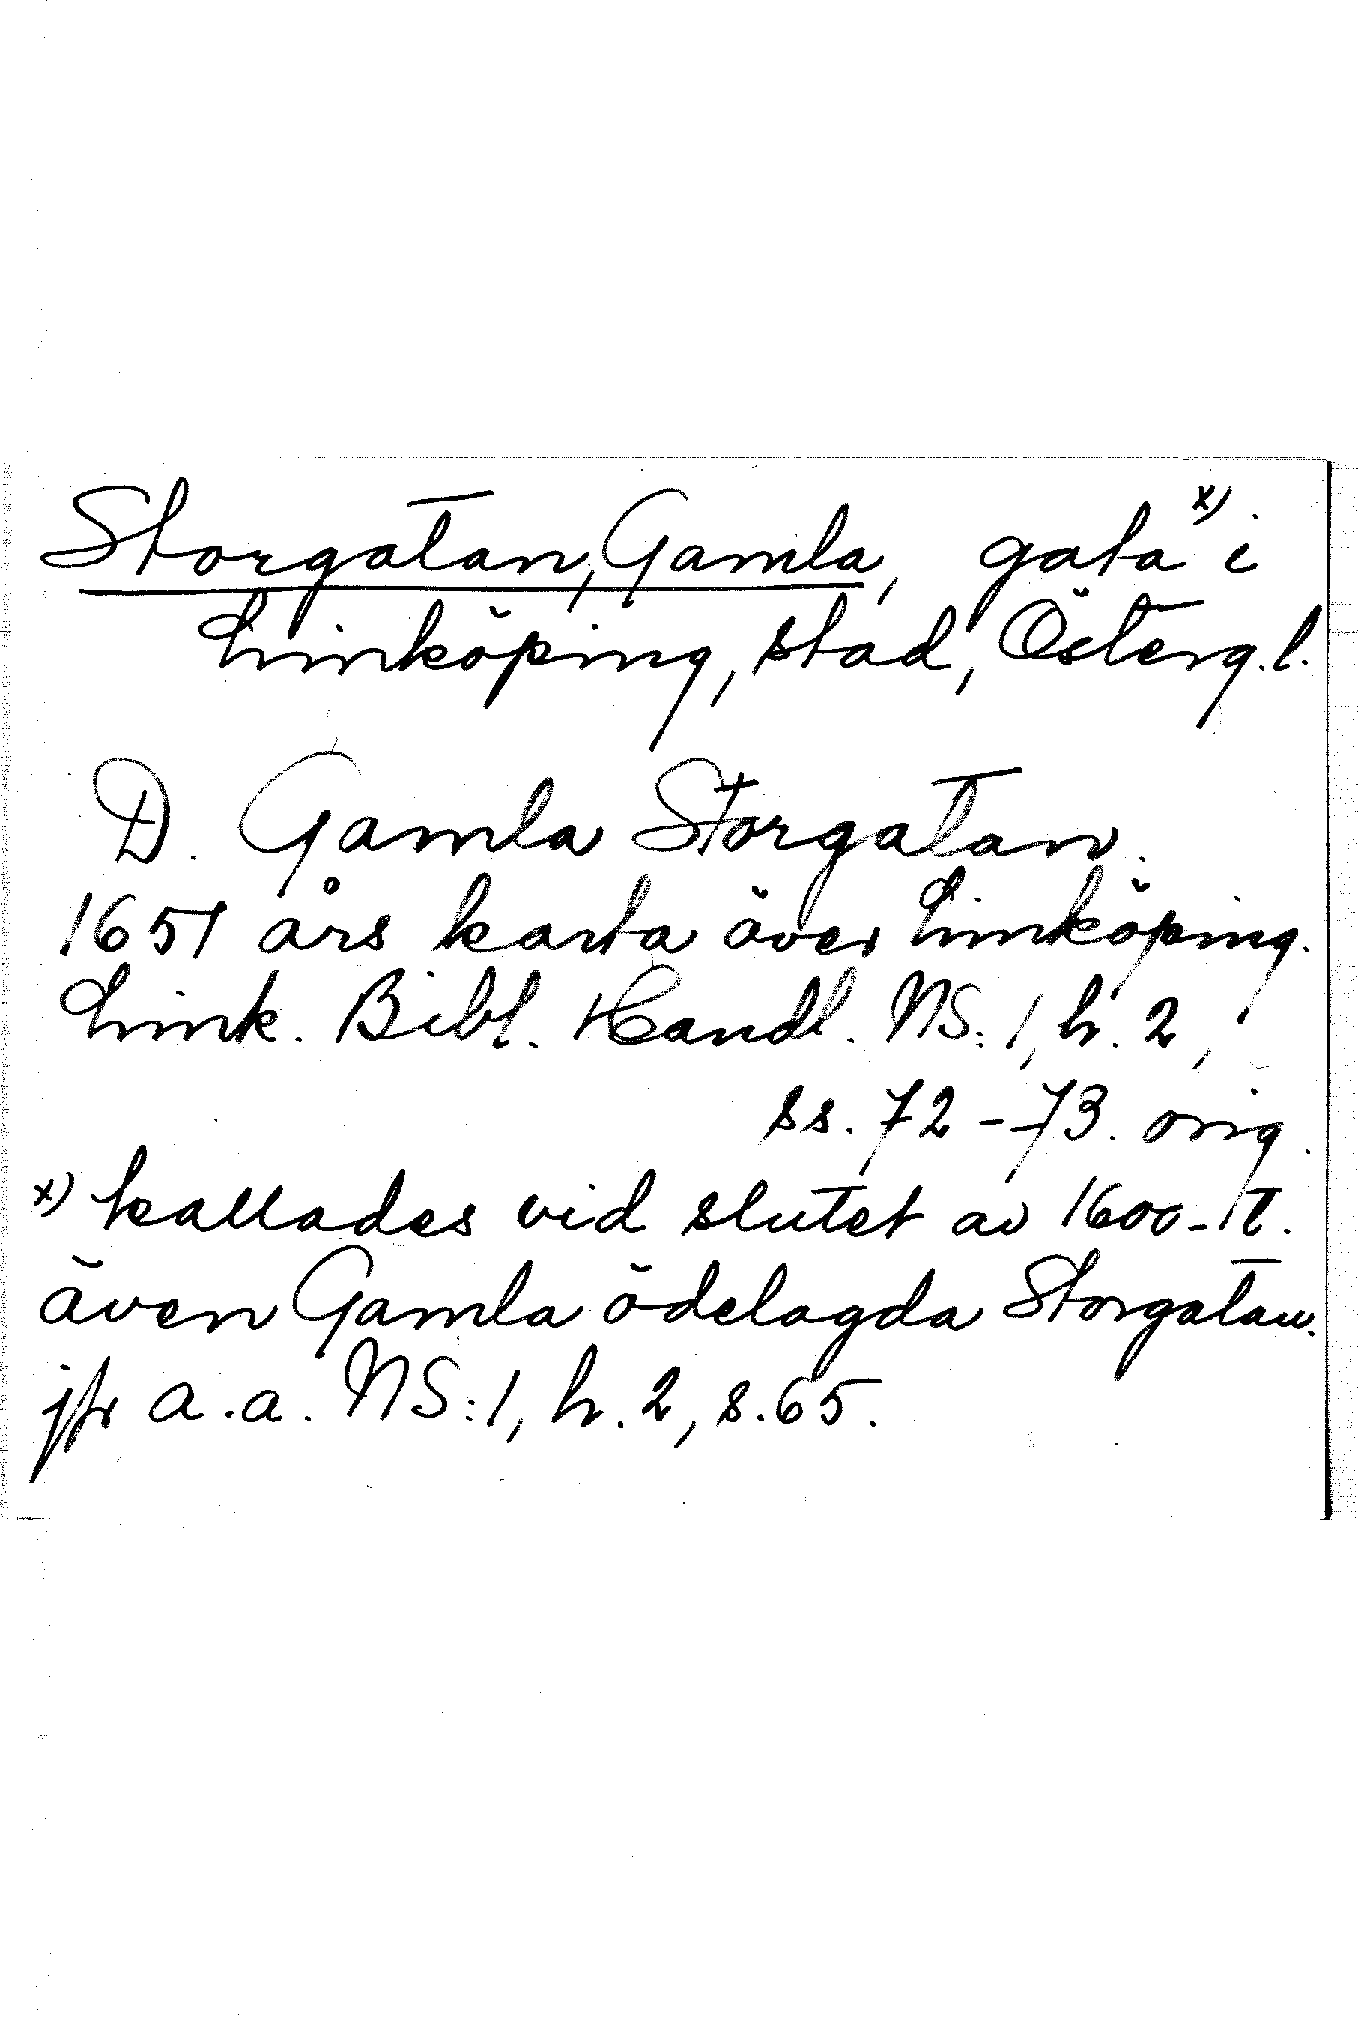 Storgatan, Gamla, gata x) i
Linköping, stad, Österg.l.
D. Gamla Storgatan.
1651 års karta över Linköping.
Link. Bibl. Handl. NS:1, h. 2,
ss. 72-73. orig.
x) kallades vid slutet av 1600-t.
även Gamla ödelagda Storgatan.
jfr a.a. NS:1, h. 2, s. 65.